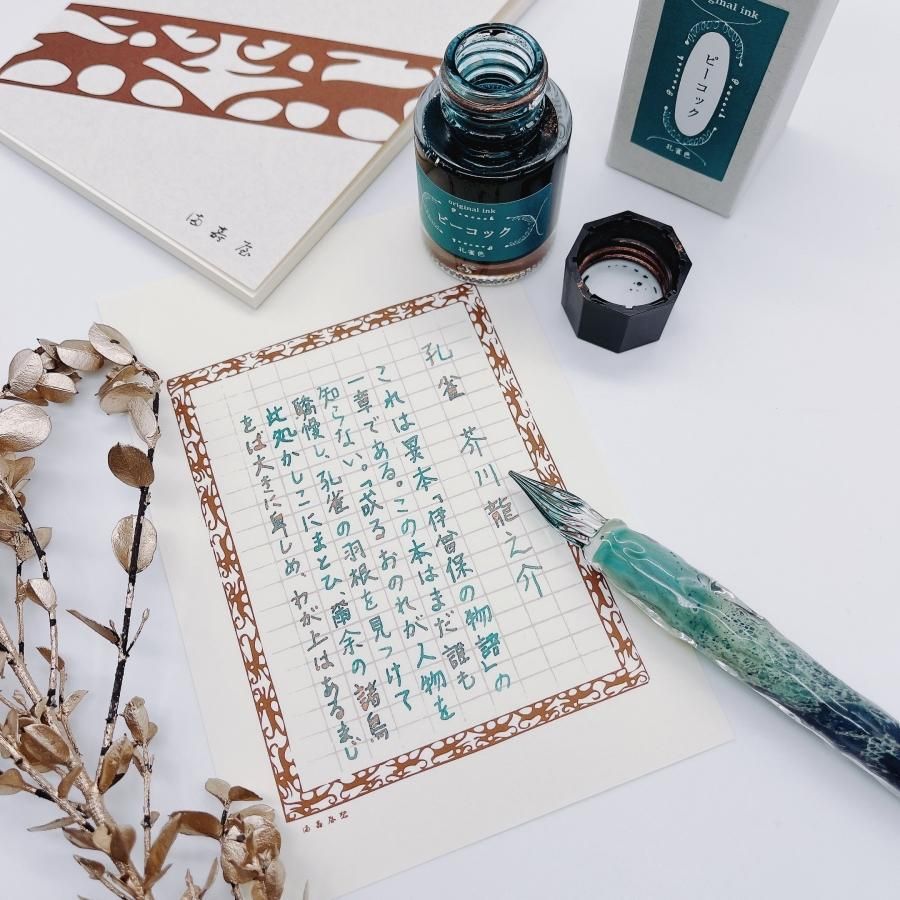 original ink
ピーコック
Peacock
孔雀色
original ink
Peacock
ピーコック
孔雀色
満壽屋
孔雀 芥川龍之介
これは異本「伊曽保の物語」の
一章である。この本はまだ誰も
知らない。「或る おのれが人物を
驕慢し、孔雀の羽根を見つけて
此処かしこにまとひ、爾余の諸鳥
をば大きに卑しめ、わが上はあるまじ